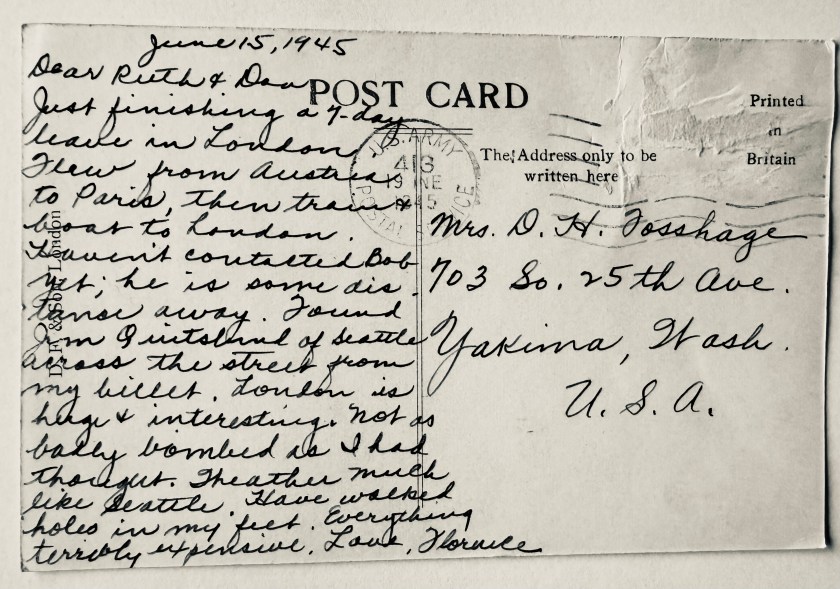 June 15, 1945
Dear Ruth & Don
Just finishing a 7-day
leave in London
Flew from Austria
to Paris, then train &
boat to London.
Haven't contacted Bob
yet; he is some dis-
tance away. Found
Jim of Seattle
across the street from
my billet. London is
huge & interesting. Not as
badly bombed as I had
thought. Weather much
like Seattle. Have walked
holes in my feet. Everything
terribly expensive. Love, Florence
POST CARD
Printed
in
Britain
The Address only to be
written here
U.S. ARMY
413
19 NE
1945
POSTAL SERVICE
Mrs. D. H. Fosshage
703 So. 25th Ave.
Yakima, Wash.
U. S. A.
& Sons London